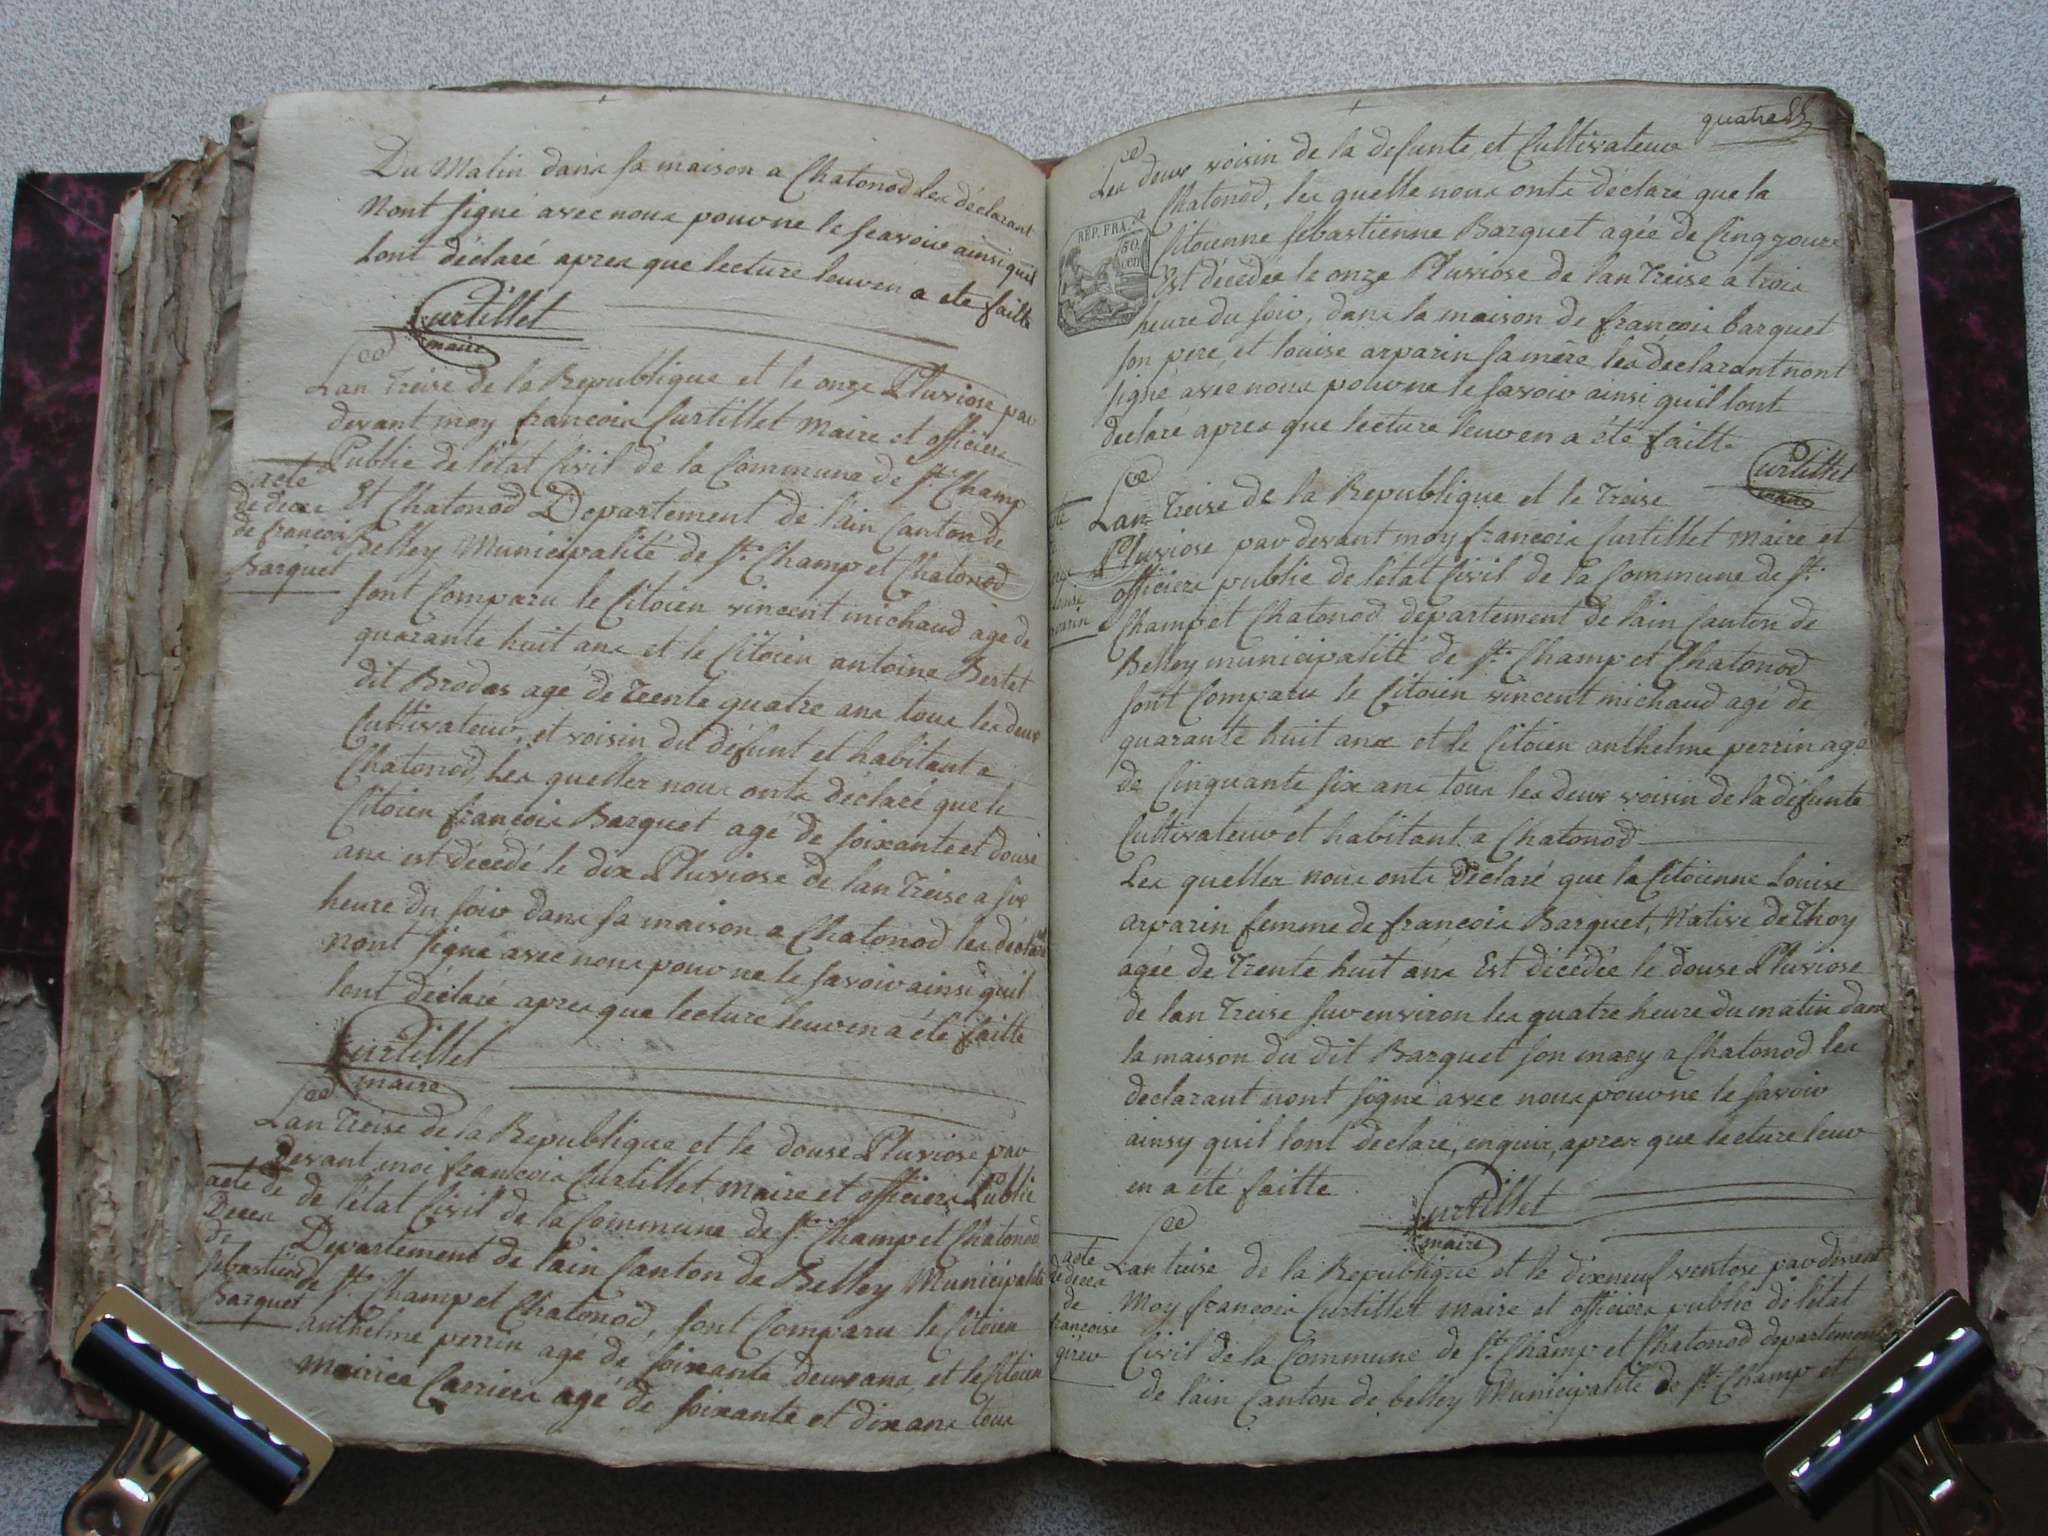 Du Matin dans sa maison a Chatonod les déclarant
Nont signé avec nous pour ne le scavoir ainsi quil
Lont déclaré apres que lecture leur en a ete faitte
Curtillet
maire
Lan treise de la Republique et le onze Pluviose par
devant moy francois Curtillet Maire et officiers
Public de létat Civil de la Commune de St. Champ
Et Chatonod Departement de lain Canton de
Belley Municipalité de St. Champ et Chatonod
sont Comparu le Citoien vincent michaud agé de
quarante huit ans et le Citoien antoine Bertet
dit Brodas agé de trente quatre ans tous les deux
Cultivateur, et voisin du défunt et habitant a
Chatonod, les quelles nous onts déclaré que le
Citoien francois Barquet agé de soixante et douse
ans est décedé le dix Pluviose de lan treise a six
heure du soir dans sa maison a Chatonod les déclarant
Nont signé avec nous pour ne le savoir ainsi quil
lont déclaré apres que lecture leur en a été faitte
Curtillet
maire
acte
de deces
de francois
Barquet
Lan treise de la Republique et le douse Pluviose par
devant moi francois Curtillet Maire et officiers Public
de létat Civil de la Commune de St. Champ et Chatonod
Departement de lain Canton de Belley Municipalité
de St. Champ et Chatonod, sont Comparu le Citoien
anthelme perrin agé de soixante deux ans et le Citoien
Mairice Carriere agé de soixante et dix ans tous
acte de
Deces
de
sebastiene
Barquet
quatre
Les deux voisin de la defunte et Cultivateur
a Chatonod, les quelle nous onts déclaré que la
Citoienne sebastienne Barquet agée de Cinq jours
Est décedée le onze Pluviose de lan treise a trois
heure du soir, dans la maison de francois barquet
son pere, et louise arparin sa mère les déclarant nont
signé avec nous pour ne le savoir ainsi quil lont
declaré apres que lecture leur en a été faitte
REP. FRA.
50
cen
Curtillet
maire
Lan treise de la Republique et le treise
Pluviose par devant moy francois Curtillet maire et
officiers public de létat Civil de la Commune de St.
Champ et Chatonod departement de lain Canton de
Belley municipalité de St. Champ et Chatonod
sont Comparu le Citoien vincent michaud agé de
quarante huit ans et le Citoien anthelme perrin agé
de Cinquante six ans tous les deux voisin de la défunte
Cultivateur et habitant a Chatonod
Les quelles nous onts déclaré que la Citoienne Louise
arparin femme de francois Barquet, Native de Thoy
agée de trente huit ans Est décédée le douse Pluviose
de lan treise sur environ les quatre heure du matin dans
la maison du dit Barquet son mary a Chatonod les
déclarant nont signé avec nous pour ne le savoir
ainsy quil lont declaré, enquis, apres que lecture leur
en a été faitte
Curtillet
maire
Lan treise de la Republique et le dixneuf ventose par devant
Moy francois Curtillet maire et officiers public de létat
Civil de la Commune de St. Champ et Chatonod departement
de lain Canton de belley Municipalité de St. Champ et
acte
de deces
de
francoise
girer